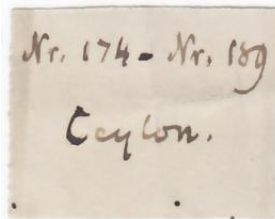 Nr. 174 - Nr. 189
Ceylon.